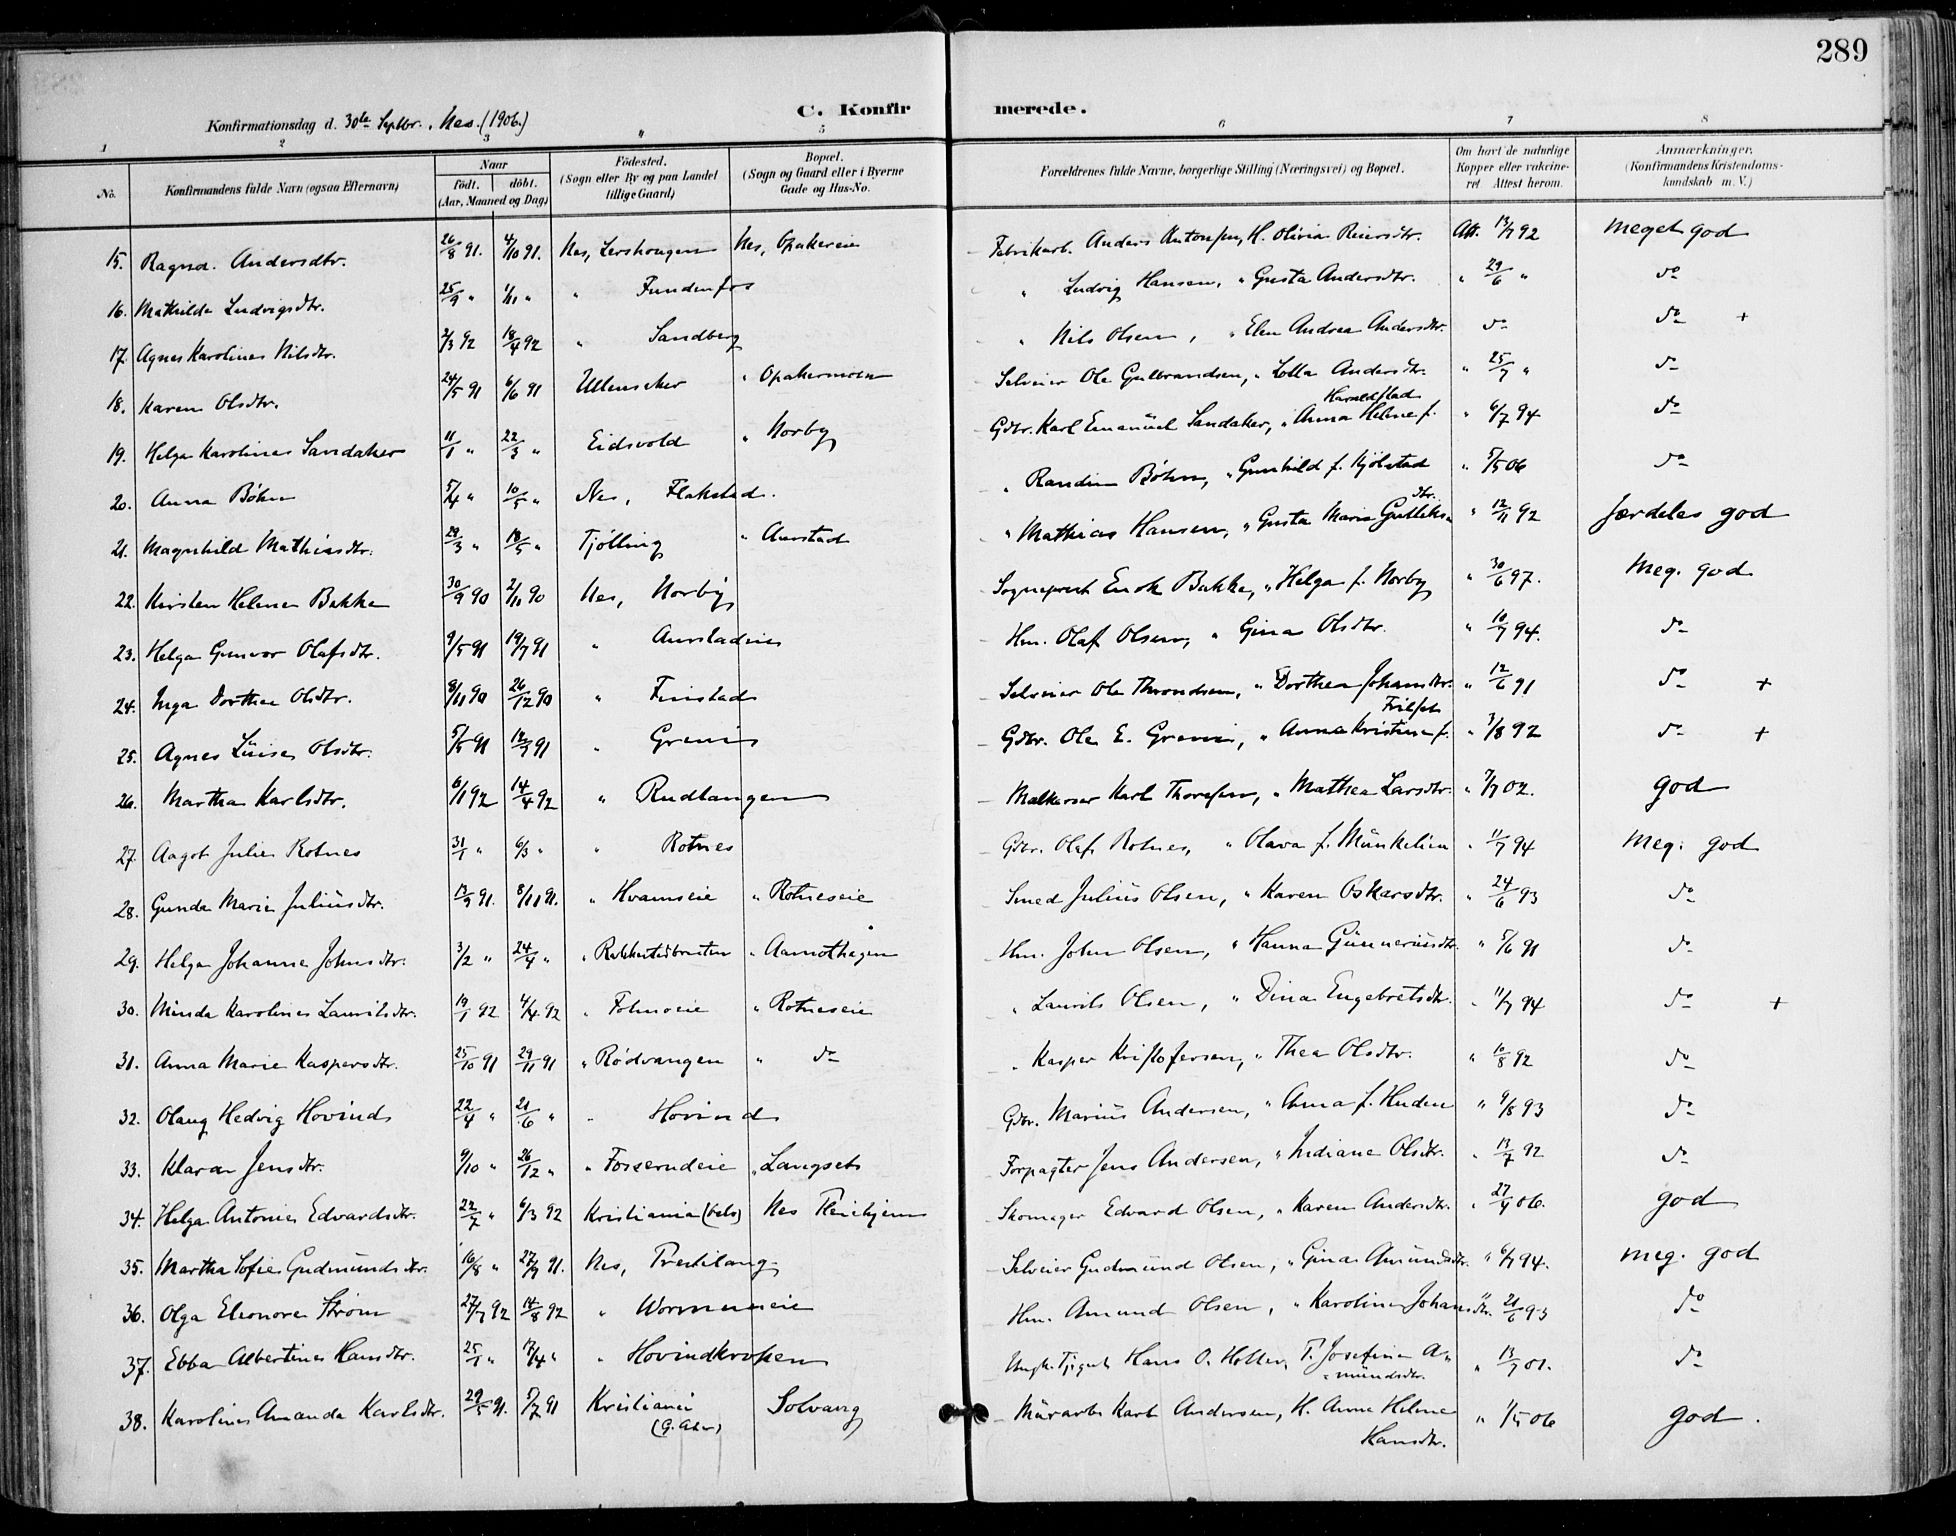 289
C. Konfirmerede.
Konfirmationsdag d. 30te Septbr. Nes. (1906.)
1 2 3 " 5 6 7 8
No. Konfirmandens fulde Navn (ogsaa Efternavn) Naar født. døbt. (Aar, Maaned og Dag) Fødested. (Sogn eller By og paa Landet tillige Gaard) Bopæl. (Sogn og Gaard eller i Byerne Gade og Hus-No. Forældrenes fulde Navne, borgerlige Stilling (Næringsvei) og Bopæl. Om havt de naturlige Kopper eller vakcineret. Attest herom. Anmærkninger. (Konfirmandens Kristendomskundskab m. V.)
15. Ragna Andersdtr. 26/8 91. 4/10 91. Nes, Nes, Opakereie Fabrikarb. Anders Antonsen, H. Olivia Reiersdtr. Att. 13/7 92 Meget god
16. Mathilde Ludvigsdtr. 25/9 " 1/11 " " Fundenfos " Ludvig Hansen, " Gusta Andersdtr. " 29/6 " do
17. Agnes Karoline Nilsdtr. 2/3 92 18/4 92 " Sandberg " Nils Olsen, " Elen Andrea Andersdtr. do do +
18. Karen Olsdtr. 24/5 91 6/6 91 Ullensaker " Opakermoen Selveier Ole Gulbrandsen, " Lotta Andersdtr. " 25/7 " do
19. Helga Karoline Sandaker 11/1 " 22/3 " Eidsvold " Norby Gdbr. Karl Emanuel Sandaker, " Anna Helene f. Haraldstad " 6/7 94 do
20. Anna Bøhn 5/4 " 10/5 " Nes, Flakstad. " Randin Bøhn, " Gunhild f. Kjølstad " 5/5 06 do
21. Magnhild Mathiasdtr. 29/3 " 18/5 " Tjølling " Aurstad " Mathias Hansen, " Gusta Marie Gulliks dtr. " 12/11 92 Særdeles god
22. Kirsten Helene Bakke 30/9 90 2/11 90 Nes, Norby Sogneprest Enok Bakke, " Helga f. Norby " 30/6 97. Meg. god
23. Helga Gunvor Olafsdtr. 9/5 91 19/7 91 " Aurstadeie Hm. Olaf Olsen, " Gina Olsdtr. " 10/7 94. do
24. Inga Dorthea Olsdtr. 8/11 90 26/12 90 " Finstad Selveier Ole Throndsen, " Dorthea Johansdtr. " 12/6 91 do +
25. Agnes Luise Olsdtr. 5/5 91 12/7 91 " Greni Gdbr. Ole E. Greni, " Anna Kristine f. Frilset " 3/8 92 do +
26. Martha Karlsdtr. 6/1 92 14/4 92 " Rudlangen Karl Thoresen, " Mathea Larsdtr. " 7/7 02. god
27. Aagot Julie Rotnes 31/1 " 6/3 " " Rotnes Gdbr. Olaf Rotnes, " Olava f. Munkelien " 11/7 94 Meg. god
28. Gunda Marie Juliusdtr. 13/9 91. 8/11 91. " Hvamseie " Rotneseie Smed Julius Olsen, " Karen Oskarsdtr. " 24/6 93 do
29. Helga Johanne Johnsdtr. 3/2 " 24/4 " " " Aamothagen Hm. John Olsen, " Hanna Gunneriusdtr. " 5/6 91 do
30. Minda Karoline Lauritsdtr. 19/1 92 4/4 92 " " Rotneseie " Laurits Olsen, " Dina Engebretsdtr. " 11/7 94 do +
31. Anna Marie Kaspersdtr. 25/10 91 29/11 91 " Rødvangen " do " Kasper Kristofersen, " Thea Olsdtr. " 10/8 92 do
32. Olaug Hedvig Hovind 22/4 " 21/6 " " Hovind Gdbr. Marius Andersen, " Anna f. Huden " 9/8 93 do
33. Klara Jensdtr. 9/10 " 26/12 " " Fosserudeie " Langset Forpagter Jens Andersen, " Indiane Olsdtr. " 13/7 92 do
34. Helga Antonie Edvardsdtr. 22/7 " 6/3 92 Kristiania Nes Skomager Edvard Olsen, " Karen Andersdtr. " 27/4 06. god
35. Martha Sofie Gudmundsdtr. 16/8 " 27/9 91. Nes, Selveier Gudmund Olsen, " Gina Amundsdtr. " 6/7 94. Meg. god
36. Olga Eleonore Strøm 27/7 92 14/8 92 " Hm. Amund Olsen, " Karoline Johansdtr. " 21/6 93 do
37. Ebba Albertine Hansdtr. 25/1 " 17/4 " " Hovindkroken Hans O. Holter, T. Josefine Amundsdtr. " 13/7 01. do
38. Karoline Amanda Karlsdtr. 29/5 91. 5/7 91 Kristiania (G. Aker) Solvang Murarb. Karl Andersen, H. Anne Helene Hansdtr. " 1/5 06 god.